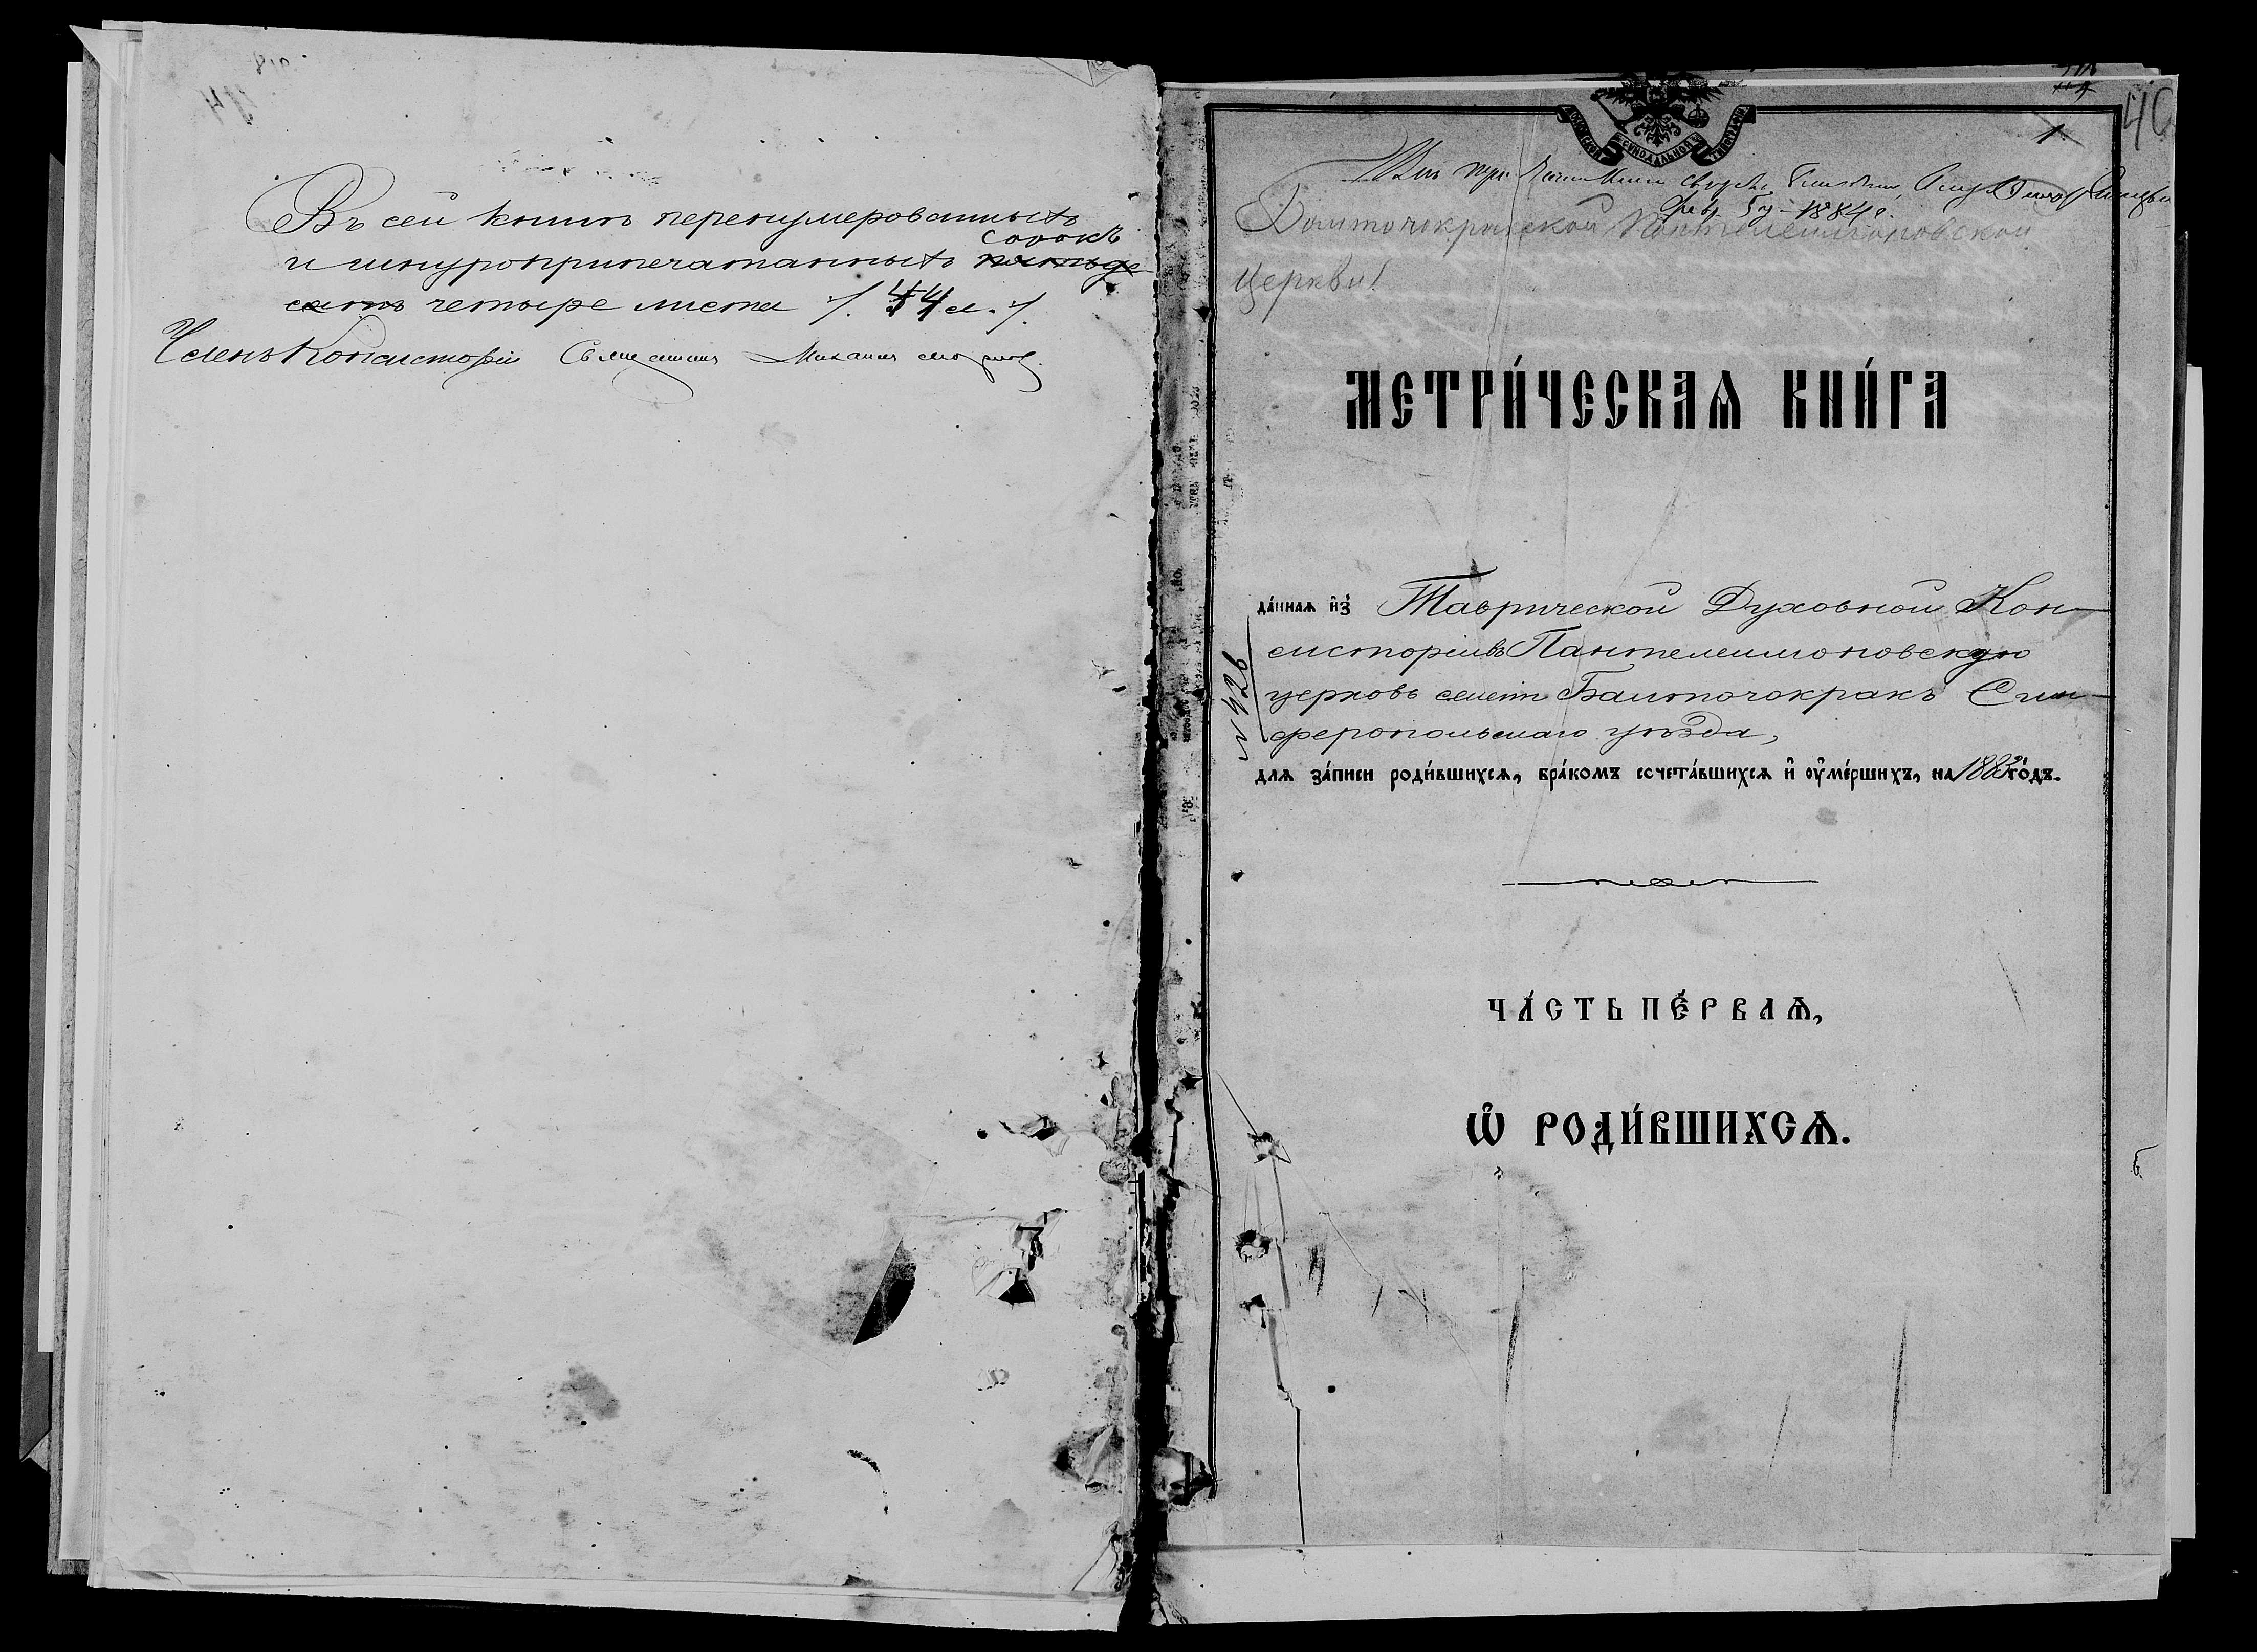 Въ сей книгѣ перенумерованныхъ
и шнуроприпечатанныхъ пятьде
сорокъ
сятъ четыре листа /. 44 л. /.
Членъ Консисторіи Священникъ Михаилъ
40
1
МОСКОВСКОЙ СѴНОДАЛЬНОЙ ТИПОГРАФІИ
1884 г.
Баштачокракской Пантелеимоновской
Церкви
МЕТРИ́ЧЕСКАѦ КНИ́ГА
да́ннаѧ и҆з̾ Таврической Духовной Кон-
систоріи въ Пантелеимоновскую
церковь селенія Баштачокракъ Сим-
феропольскаго уѣзда,
№ 426
для за́писи роди́вшихсѧ, бра́комъ сочета́вшихсѧ и҆ ᲂу҆ме́ршихъ, на 1883 го́дъ.
ЧА́СТЬ ПЕ́РВАѦ,
Ѽ РОДИ́ВШИХСѦ.